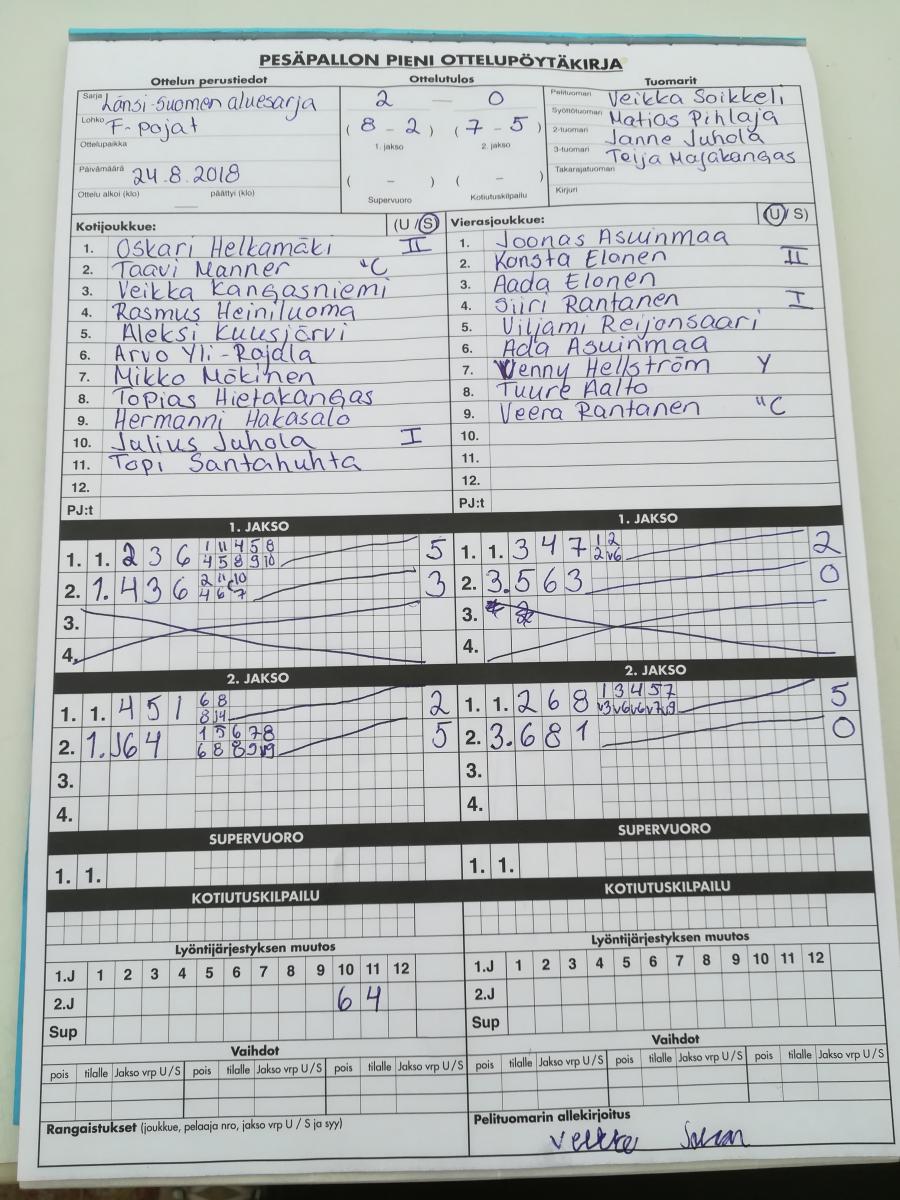 PESÄPALLON PIENI OTTELUPÖYTÄKIRJA
Ottelun perustiedot
Sarja Länsi-Suomen aluesarja
Lohko F-pojat
Ottelupaikka
Päivämäärä 24.8.2018
Ottelu alkoi (klo) päättyi (klo)
Ottelutulos
2 — 0
(8 - 2) (7 - 5)
1. jakso 2. jakso
( - ) ( - )
Supervuoro Kotiutuskilpailu
Tuomarit
Pelituomari Veikka Soikkeli
Syöttötuomari Matias Pihlaja
2-tuomari Janne Juhola
3-tuomari Teija Majakangas
Takarajatuomari
Kirjuri
Kotijoukkue: (U/S)
1. Oskari Helkamäki II
2. Taavi Manner "C
3. Veikka Kangasniemi
4. Rasmus Heiniluoma
5. Aleksi Kuusjärvi
6. Arvo Yli-Rajala
7. Mikko Mäkinen
8. Topias Hietakangas
9. Hermanni Hakasalo
10. Julius Juhola I
11. Topi Santahuhta
12.
PJ:t
Vierasjoukkue: (U/S)
1. Joonas Asuinmaa
2. Konsta Elonen II
3. Aada Elonen
4. Siiri Rantanen I
5. Viljami Reijonsaari
6. Ada Asuinmaa
7. Venny Hellström Y
8. Tuure Aalto
9. Veera Rantanen "C
10.
11.
12.
1. JAKSO
1. 1. 2 3 6 1 11 4 5 8 5
4 5 8 9 10
2. 1. 4 3 6 2 11 10 3
4 6 7
3.
4.
1. JAKSO
1. 1. 3 4 7 1 2 2
2 v6
2. 3. 5 6 3 0
3.
4.
2. JAKSO
1. 1. 4 5 1 6 8 2
8 J4
2. 1. J6 4 1 5 6 7 8 5
6 8 8 9 v9
3.
4.
2. JAKSO
1. 1. 2 6 8 1 3 4 5 7 5
v3 v6 v6 v7 v9
2. 3. 6 8 1 0
3.
4.
SUPERVUORO
1. 1.
SUPERVUORO
1. 1.
KOTIUTUSKILPAILU
KOTIUTUSKILPAILU
Lyöntijärjestyksen muutos
1.J 1 2 3 4 5 6 7 8 9 10 11 12
2.J 6 4
Sup
Lyöntijärjestyksen muutos
1.J 1 2 3 4 5 6 7 8 9 10 11 12
2.J
Sup
Vaihdot
pois tilalle Jakso vrp U/S pois tilalle Jakso vrp U/S pois tilalle Jakso vrp U/S
Vaihdot
pois tilalle Jakso vrp U/S pois tilalle Jakso vrp U/S pois tilalle Jakso vrp U/S
Rangaistukset (joukkue, pelaaja nro, jakso vrp U / S ja syy)
Pelituomarin allekirjoitus